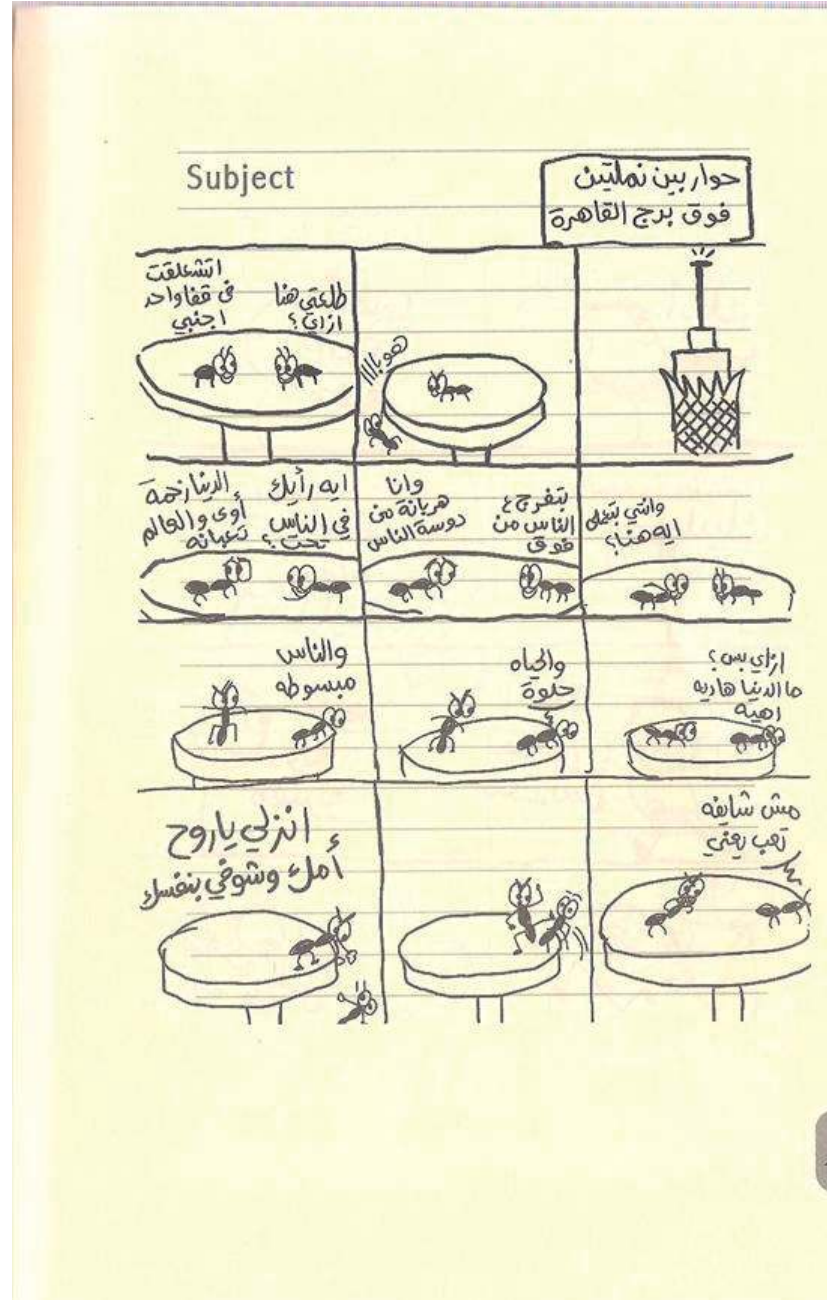 Subject
حوار بين نملتين
فوق برج القاهرة
هوباااا
طلعتي هنا
ازاي؟
اتشعلقت
في قفا واحد
اجنبي
وانتي بتعملي
ايه هنا؟
بتفرج ع
الناس من
فوق
وانا
هربانة من
دوسة الناس
ايه رأيك
في الناس
تحت؟
الدنيا زحمة
أوى والعالم
تعبانه
ازاي بس؟
ما الدنيا هاديه
اهيه
والحياه
حلوة
والناس
مبسوطه
مش شايفه
تعب يعني
انزلي ياروح
أمك وشوفي بنفسك